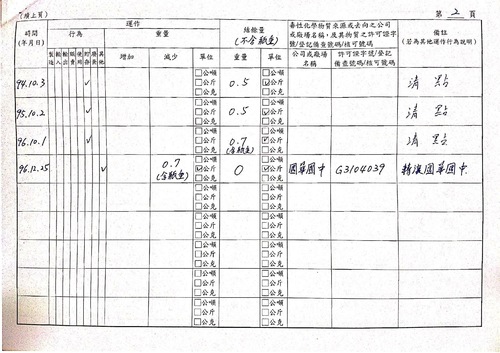 (續上頁)
第 2 頁
時間
(年月日)
運作
行為
重量
製造
輸入
輸出
販賣
使用
貯存
廢棄
其他
增加
減少
單位
結餘量
(不含紙重)
重量
單位
毒性化學物質來源或去向之公司
或廠場名稱,及其物質之許可證字
號/登記備查號碼/核可號碼
公司或廠場
名稱
許可證字號/登記
備查號碼/核可號碼
備註
(若為其他運作行為說明)
94.10.3
□公噸
□公斤
□公克
0.5
□公噸
☑公斤
□公克
清點
95.10.2
□公噸
□公斤
□公克
0.5
□公噸
☑公斤
□公克
清點
96.10.1
□公噸
□公斤
□公克
0.7
(含紙重)
□公噸
☑公斤
□公克
清點
96.12.25
0.7
(含紙重)
□公噸
☑公斤
□公克
0
□公噸
☑公斤
□公克
國華國中
G3104039
轉讓國華國中
□公噸
□公斤
□公克
□公噸
□公斤
□公克
□公噸
□公斤
□公克
□公噸
□公斤
□公克
□公噸
□公斤
□公克
□公噸
□公斤
□公克
□公噸
□公斤
□公克
□公噸
□公斤
□公克
□公噸
□公斤
□公克
□公噸
□公斤
□公克